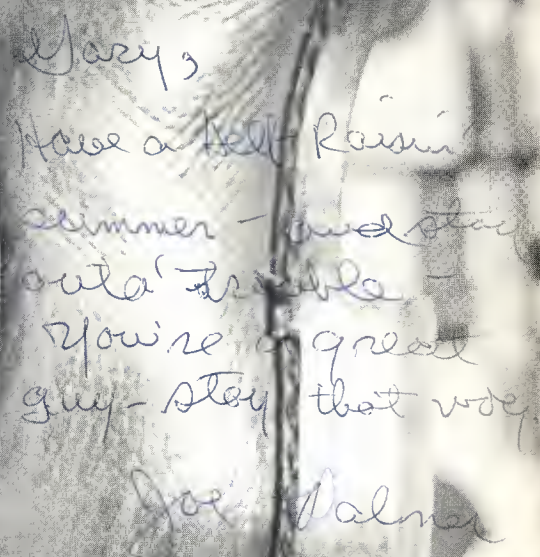 Gary,
Have a Hell Raisin'
summer - and stay
outa' Trouble -
You're a great
guy - stay that way
Joe Palmer